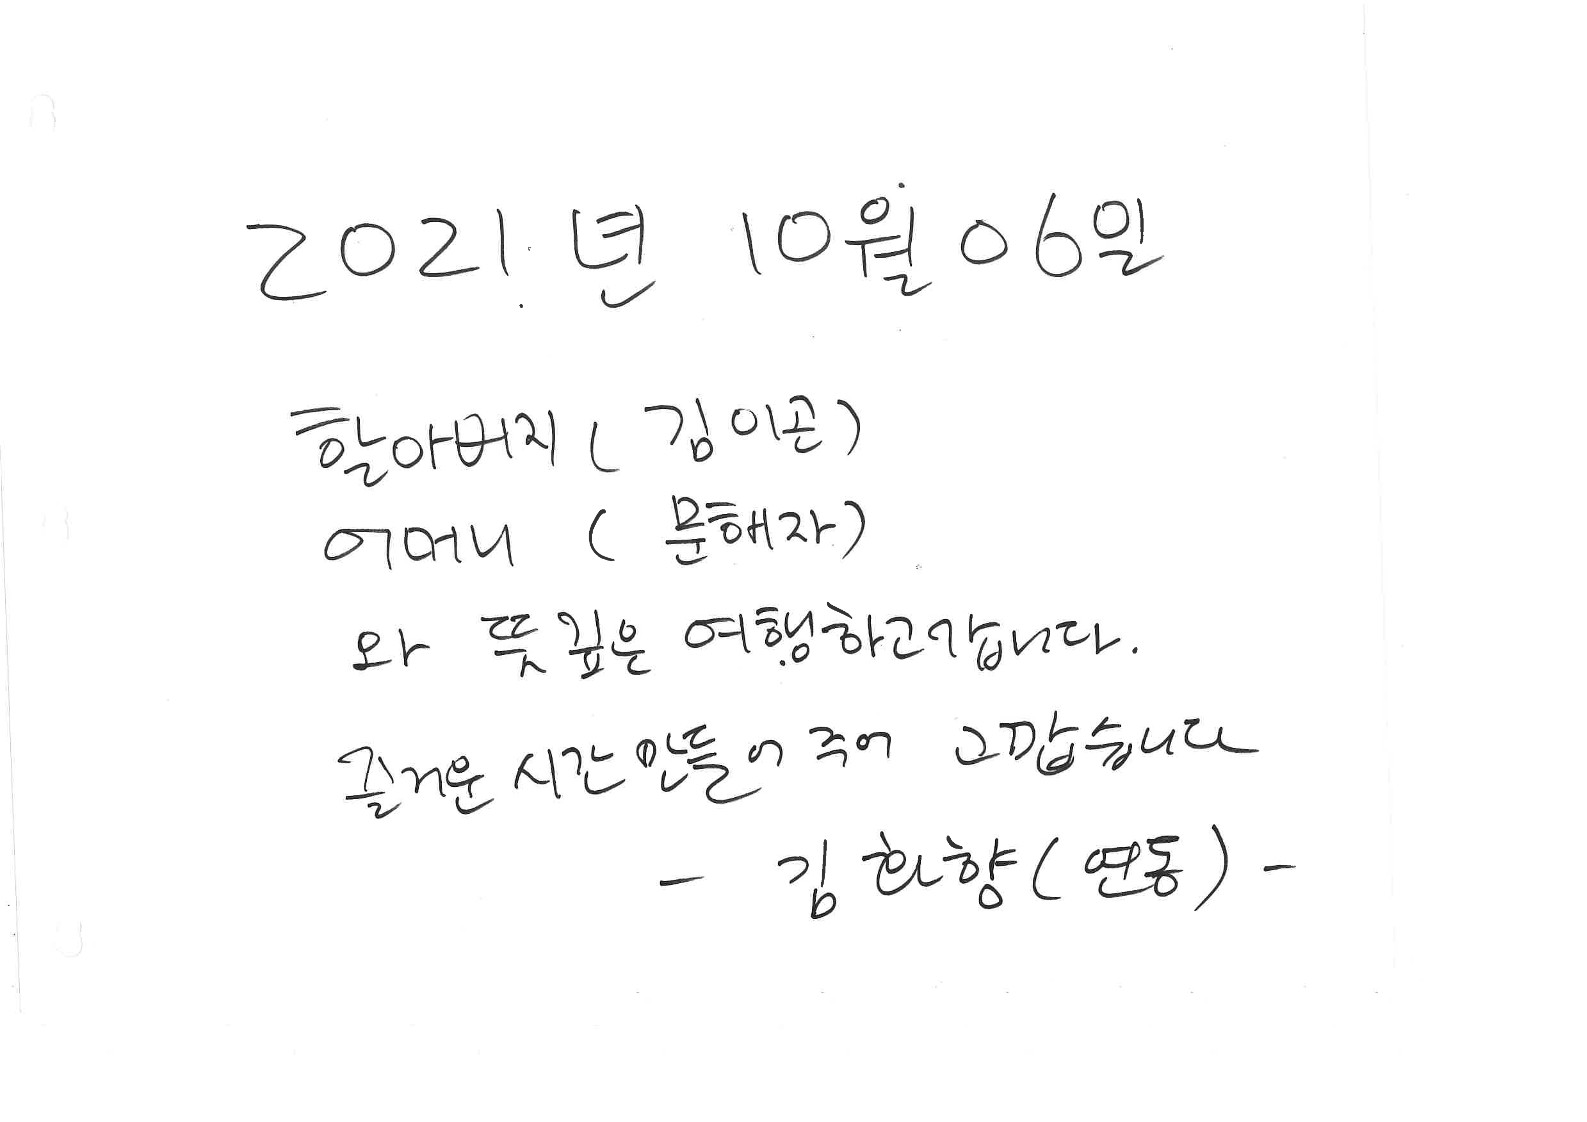 2021년 10월 06일
할아버지 ( 김이곤 )
어머니 ( 문해자 )
와 뜻깊은 여행하고갑니다.
즐거운 시간 만들어 주어 고맙습니다
- 김화향 (연동) -